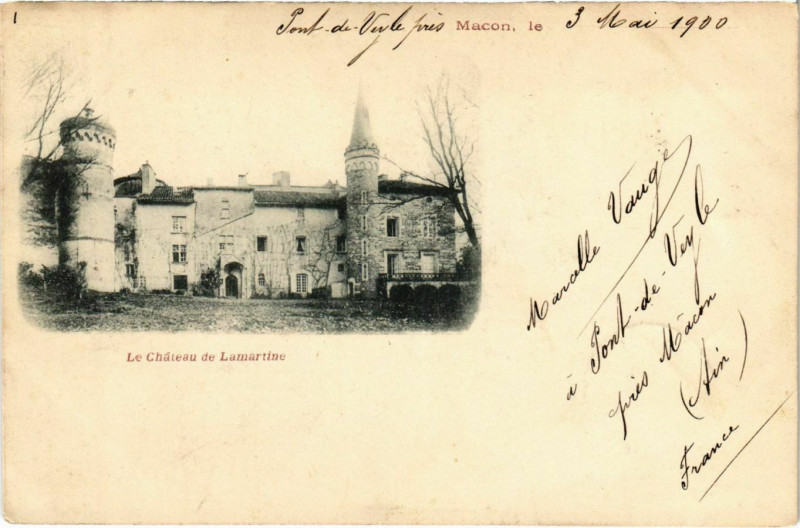 1
Pont-de-Veyle près Macon, le 3 Mai 1900
Le Château de Lamartine
Marcelle Vauge
à Pont-de-Veyle
près Mâcon
(Ain)
France